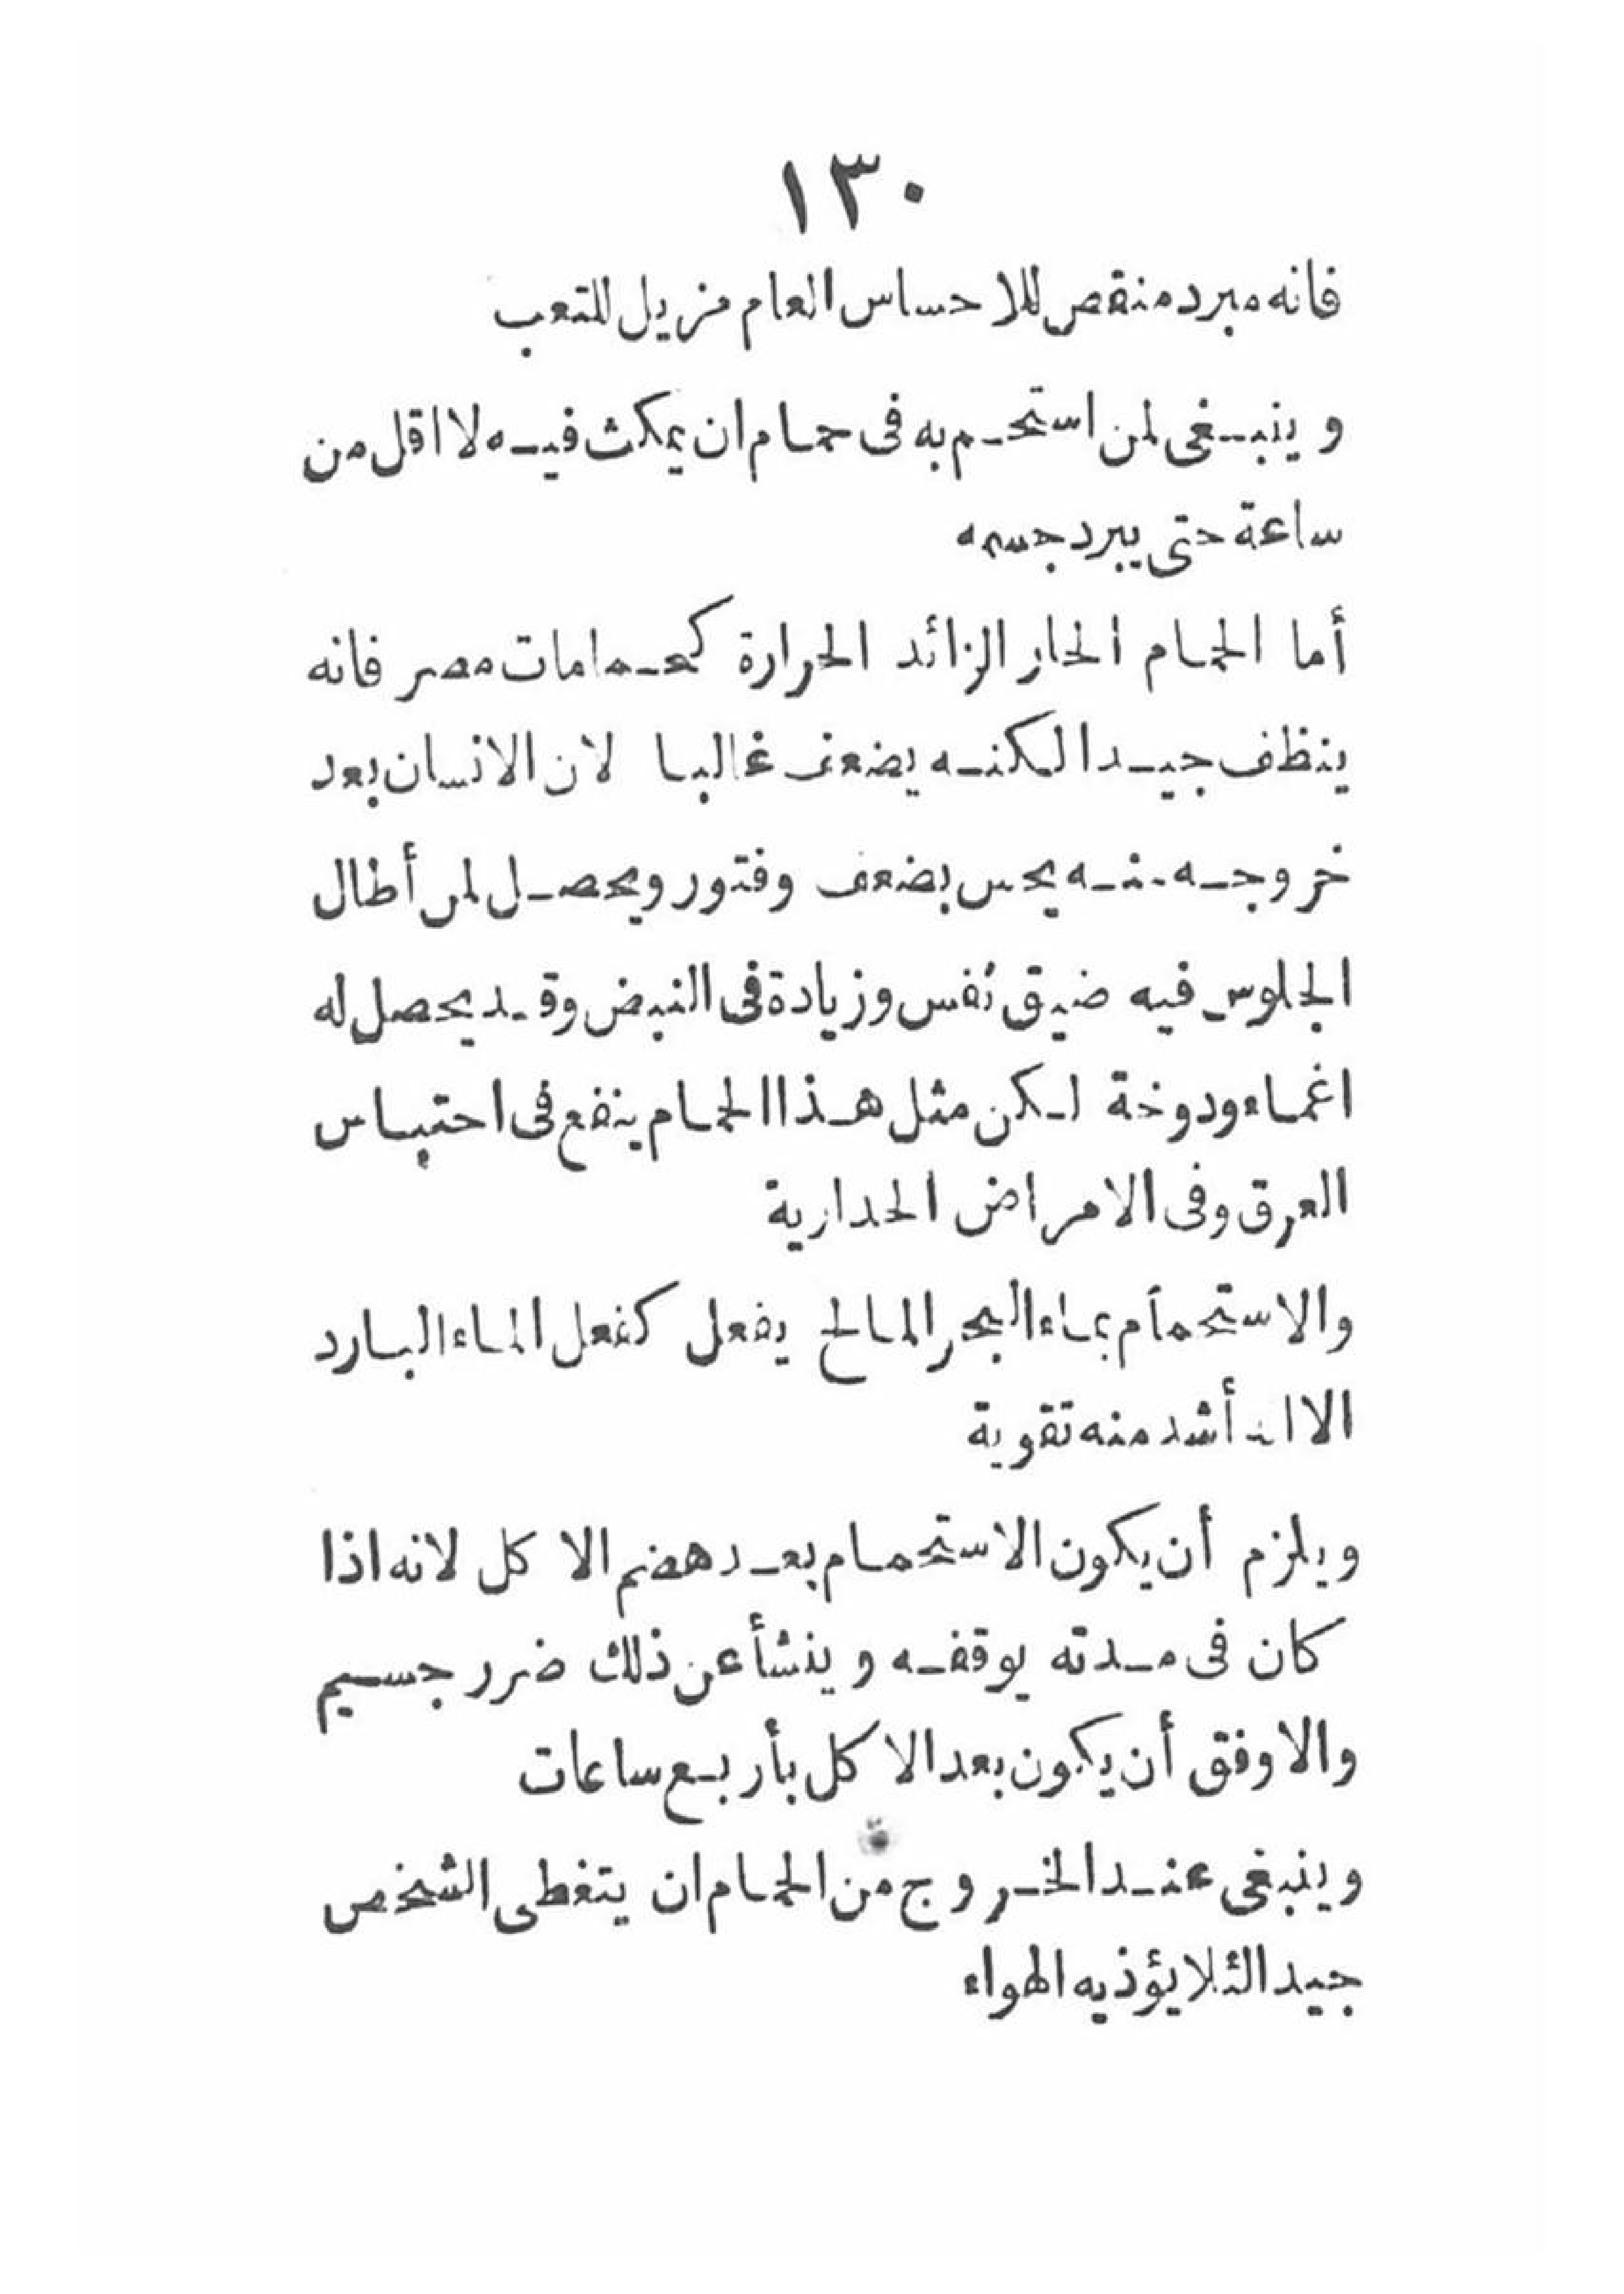 ١٣٠
فانه مبرد منقص للاحساس العام مزيل للتعب
وينبغى لمن استحم به فى حمام ان يمكث فيه لا اقل من
ساعة حتى يبرد جسمه
أما الحمام الحار الزائد الحرارة كحمامات مصر فانه
ينظف جيدا لكنه يضعف غالبا لان الانسان بعد
خروجه منه يحس بضعف وفتور ويحصل لمن أطال
الجلوس فيه ضيق نفس وزيادة فى النبض وقد يحصل له
اغماء ودوخة لكن مثل هذا الحمام ينفع فى احتباس
العرق وفى الامراض الحدارية
والاستحمام بماء البحر المالح يفعل كفعل الماء البارد
الا انه أشد منه تقوية
ويلزم أن يكون الاستحمام بعد هضم الاكل لانه اذا
كان فى مدته يوقفه وينشأ عن ذلك ضرر جسيم
والاوفق أن يكون بعد الاكل بأربع ساعات
وينبغى عند الخروج من الحمام ان يتغطى الشخص
جيدا لئلا يؤذيه الهواء